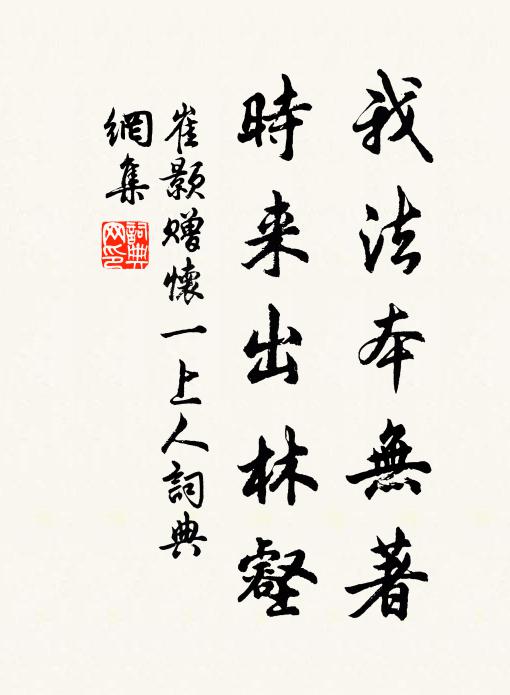 我法本無著
時来出林壑
崔顥贈懷一上人詞典
網集
詞典
网印